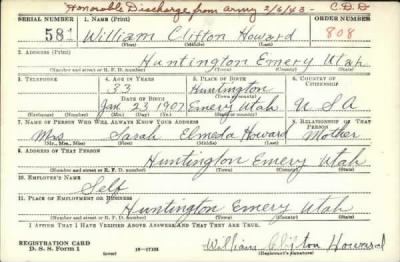 Honorable Discharge from army 2/6/43 - C.D.D
SERIAL NUMBER 1. NAME (Print) ORDER NUMBER
581 William Clifton Howard 808
(First) (Middle) (Last)
2. ADDRESS (Print)
Huntington Emery Utah
(Number and street or R. F. D. number) (Town) (County) (State)
3. TELEPHONE 4. AGE IN YEARS 5. PLACE OF BIRTH 6. COUNTRY OF CITIZENSHIP
33 Huntington
DATE OF BIRTH (Town or county)
Jan 23 1907 Emery Utah U S A
(Exchange) (Number) (Mo.) (Day) (Yr.) (State or country)
7. NAME OF PERSON WHO WILL ALWAYS KNOW YOUR ADDRESS 8. RELATIONSHIP OF THAT PERSON
Mrs Sarah Elmeda Howard Mother
(Mr., Mrs., Miss) (First) (Middle) (Last)
9. ADDRESS OF THAT PERSON
Huntington Emery Utah
(Number and street or R. F. D. number) (Town) (County) (State)
10. EMPLOYER'S NAME
Self
11. PLACE OF EMPLOYMENT OR BUSINESS
Huntington Emery Utah
(Number and street or R. F. D. number) (Town) (County) (State)
I AFFIRM THAT I HAVE VERIFIED ABOVE ANSWERS AND THAT THEY ARE TRUE.
REGISTRATION CARD
D. S. S. Form 1 (over) William Clifton Howard
(Registrant's signature)